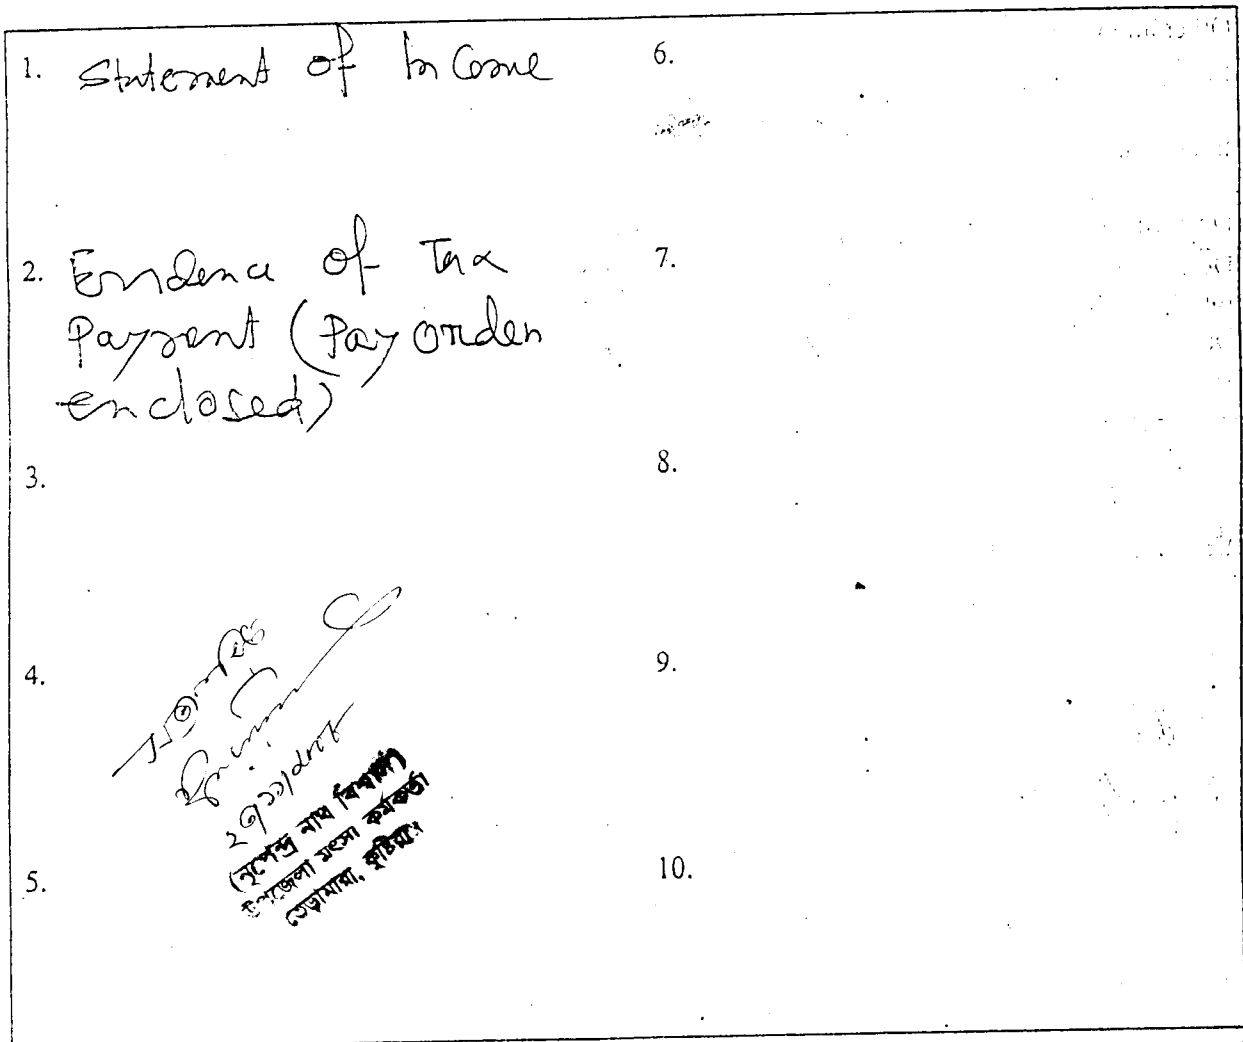 1. Statement of Income
2. Evidence of Tax
Payment (Pay order
enclosed)
3.
4.
সত্যায়িত
5.
(নৃপেন্দ্র নাথ বিশ্বাস)
উপজেলা মৎস্য কর্মকর্তা
ভেড়ামারা, কুষ্টিয়া।
6.
7.
8.
9.
10.